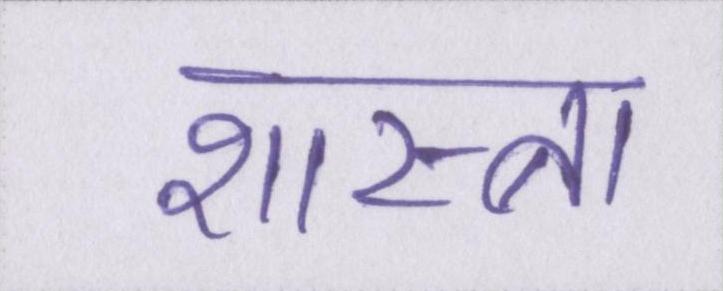 शास्त्रा